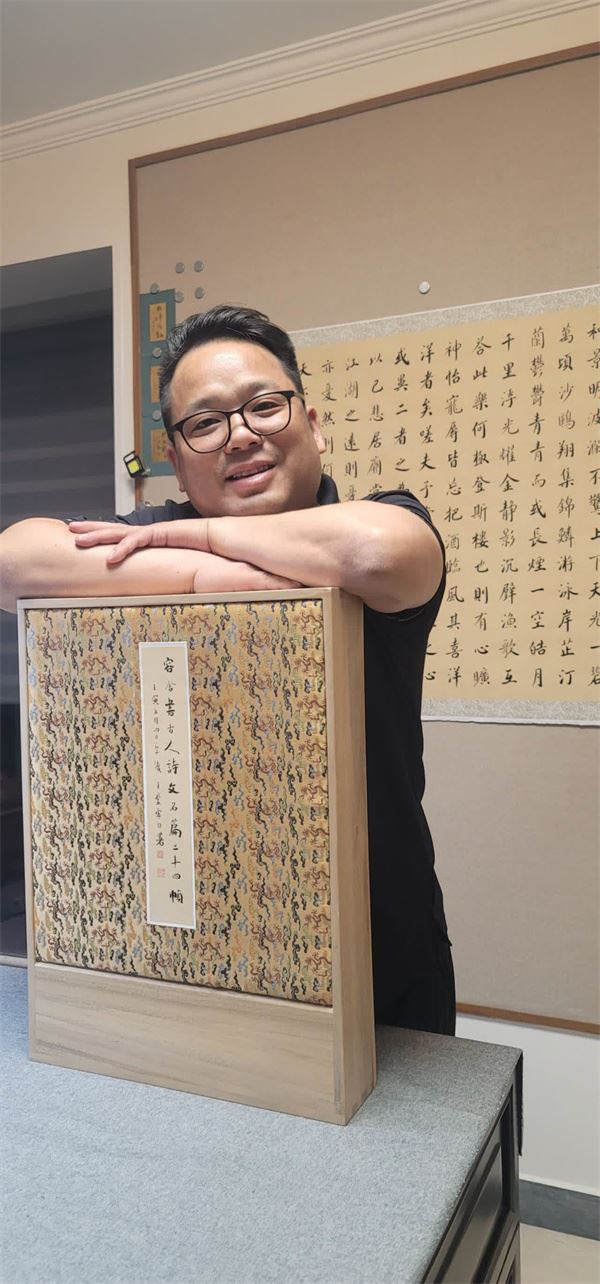 和景明波瀾不驚上下天光一碧
萬頃沙鷗翔集錦鱗游泳岸芷汀
蘭鬱鬱青青而或長煙一空皓月
千里浮光耀金靜影沉璧漁歌互
答此樂何極登斯樓也則有心曠
神怡寵辱皆忘把酒臨風其喜洋
洋者矣嗟夫予之心
或異二者之
以己悲居廟堂
江湖之遠則憂
亦憂然則何
天
容舍書古人詩文名篇二十四幀